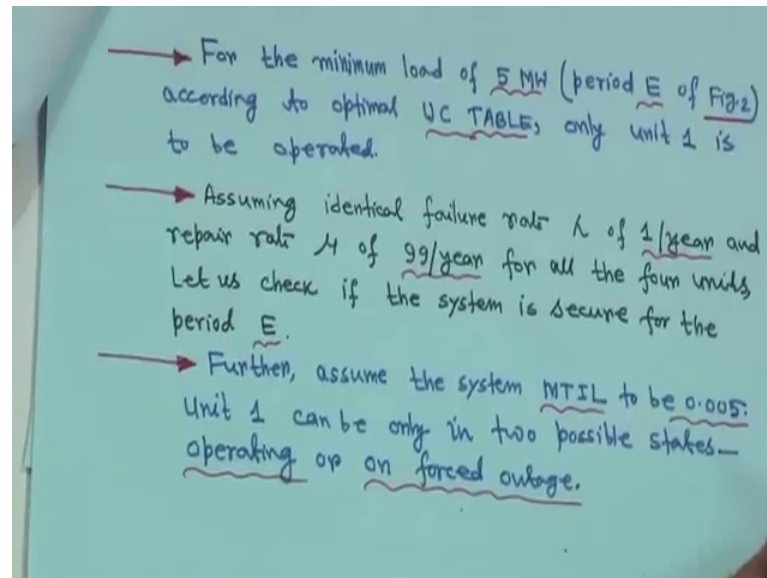 For the minimum load of 5 MW (period E of Fig.2)
according to optimal UC TABLE, only unit 1 is
to be operated.
Assuming identical failure rate λ of 1/year and
repair rate μ of 99/year for all the four units,
Let us check if the system is secure for the
period E.
Further, assume the system MTIL to be 0.005.
Unit 1 can be only in two possible states—
operating or on forced outage.